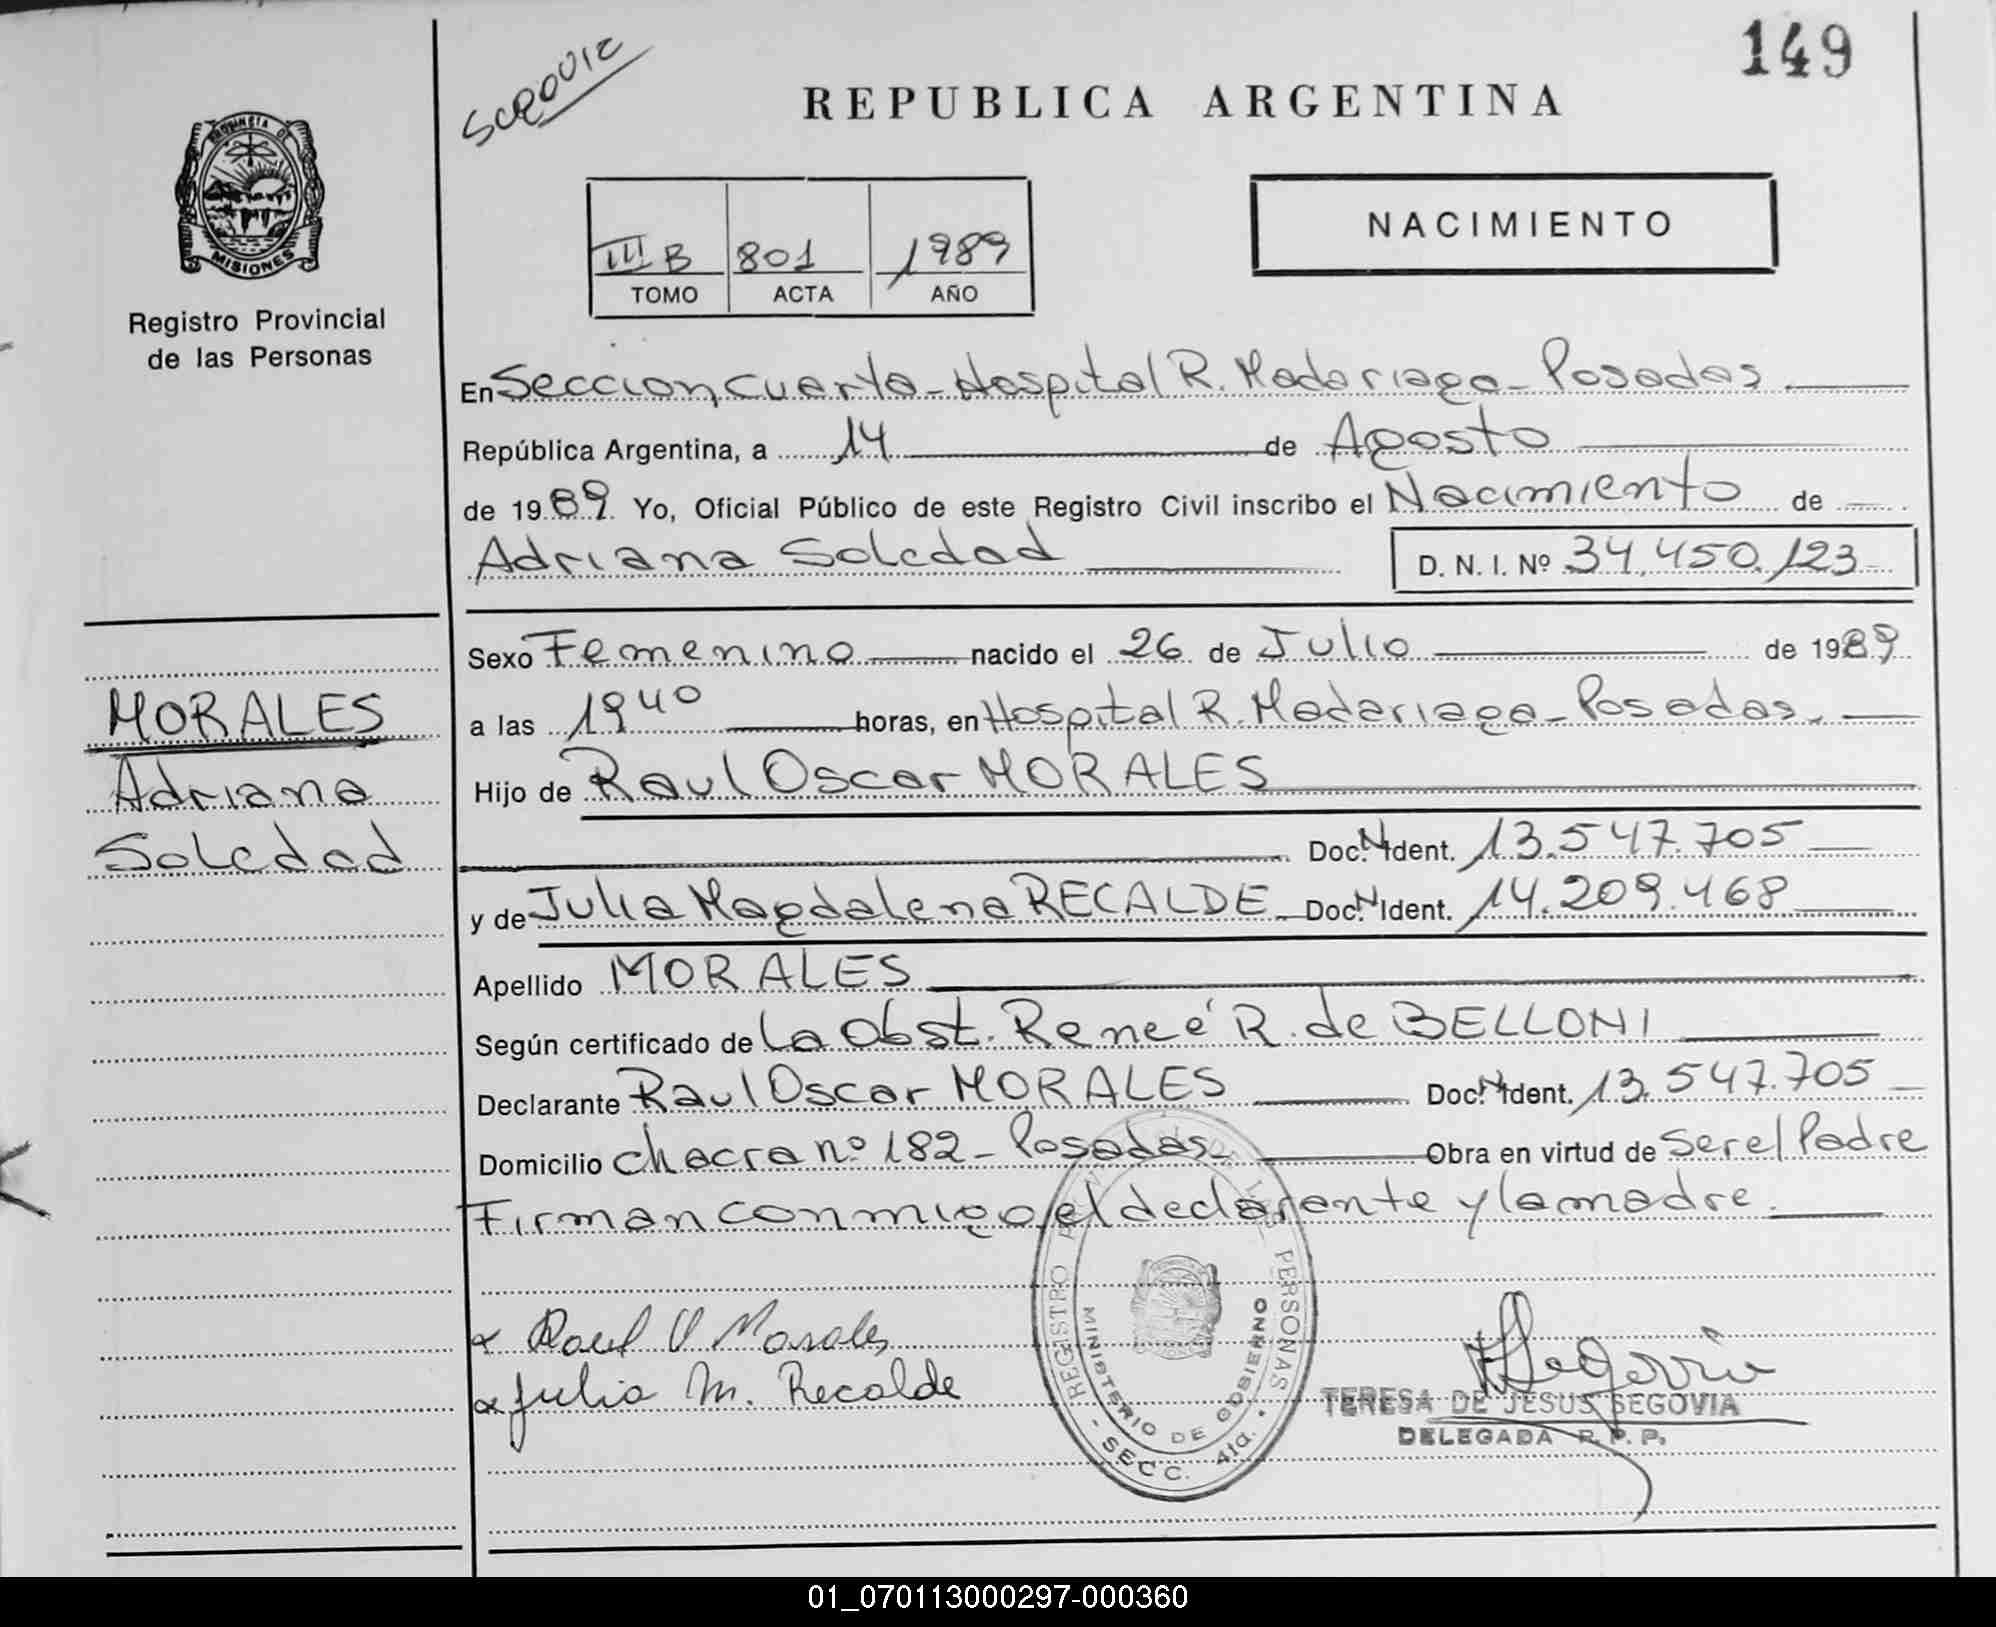 149
REPUBLICA ARGENTINA
PROVINCIA DE
MISIONES
Registro Provincial
de las Personas
NACIMIENTO
III B 801 1989
TOMO ACTA AÑO
En Seccion, cuarta - Hospital R. Madariaga - Posadas
República Argentina, a 14 de Agosto
de 1989 Yo, Oficial Público de este Registro Civil inscribo el Nacimiento de
Adriana Soledad D. N. I. Nº 34.450.123
Sexo Femenino nacido el 26 de Julio de 1989
MORALES
a las 19 40 horas, en Hospital R. Madariaga - Posadas.
Adriana
Hijo de Raul Oscar MORALES
Soledad
Doc. N Ident. 13.547.705
y de Julia Magdalena RECALDE Doc. N Ident. 14.209.468
Apellido MORALES
Según certificado de La Obst. Reneé R. de BELLONI
Declarante Raul Oscar MORALES Doc. N Ident. 13.547.705
Domicilio chacra nº 182 - Posadas Obra en virtud de Ser el Padre
Firman conmigo, el declarante y la madre.
Raul O Morales
Julia M. Recalde
REGISTRO PERSONAS
MINISTERIO DE GOBIERNO
- SECC. 4ta.
Segovia
TERESA DE JESUS SEGOVIA
DELEGADA R. P. P.
01_070113000297-000360